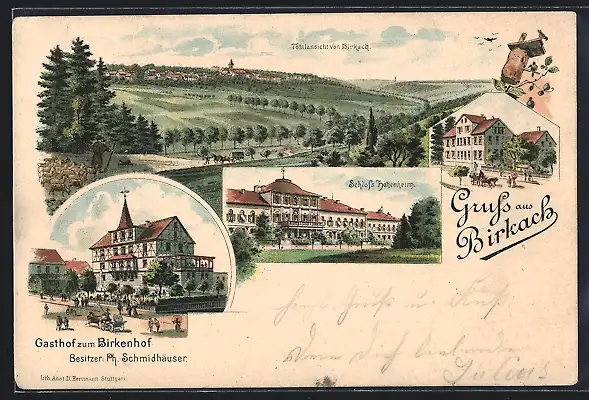 Totalansicht von Birkach.
Schloß Hohenheim.
Gruß aus
Birkach
Gasthof zum Birkenhof
Besitzer: Ph. Schmidhäuser.
Lith. Anst. D. Herrmann, Stuttgart.
Herzl. Gruß u. Kuß
Julius